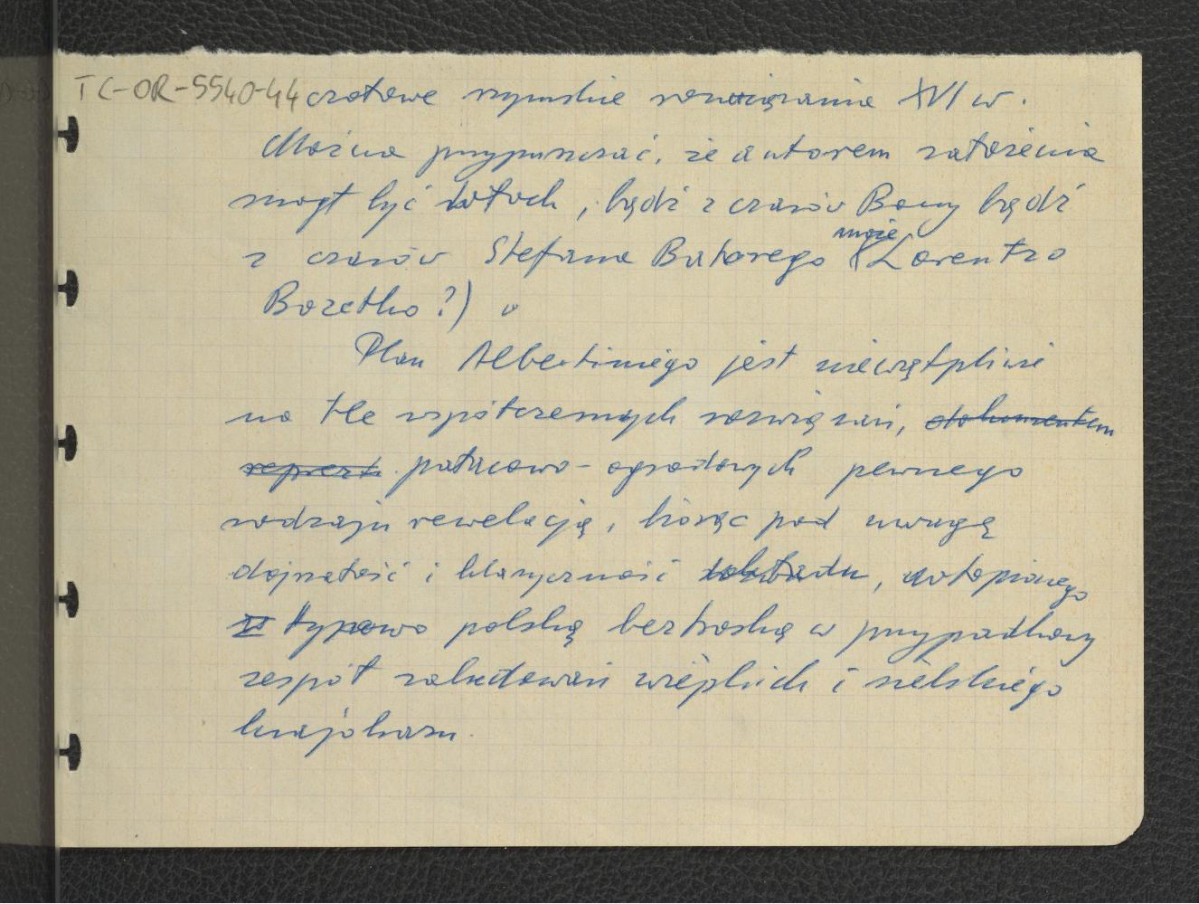 TC-OR-5540-44 czołowe rzymskie rozwiązania XVI w.
Można przypuszczać, że autorem założenia
mógł być Włoch, bądź z czasów Bony bądź
z czasów Stefana Batorego (może Lorentzo
Bozetho?)
Plan Albertiniego jest niewątpliwie
na tle współczesnych rozwiązań, dokumentem
reprez. pałacowo-ogrodowych pewnego
rodzaju rewelacją, biorąc pod uwagę
dojrzałość i klasyczność układu, wtopionego
typowo polską beztroską w przypadkowy
zespół zabudowań wiejskich i sielskiego
krajobrazu.